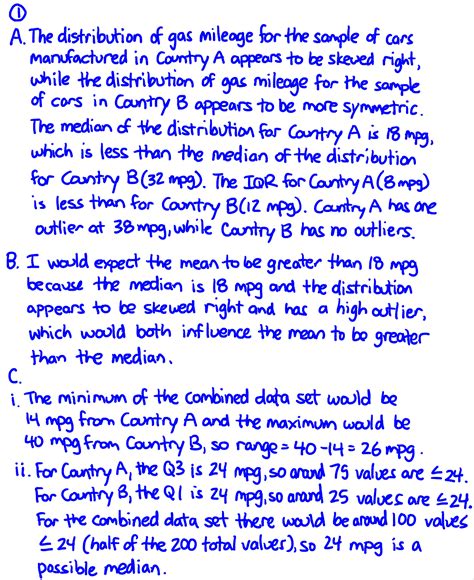 ①
A. The distribution of gas mileage for the sample of cars
manufactured in Country A appears to be skewed right,
while the distribution of gas mileage for the sample
of cars in Country B appears to be more symmetric.
The median of the distribution for Country A is 18 mpg,
which is less than the median of the distribution
for Country B (32 mpg). The IQR for Country A (8 mpg)
is less than for Country B (12 mpg). Country A has one
outlier at 38 mpg, while Country B has no outliers.
B. I would expect the mean to be greater than 18 mpg
because the median is 18 mpg and the distribution
appears to be skewed right and has a high outlier,
which would both influence the mean to be greater
than the median.
C.
i. The minimum of the combined data set would be
14 mpg from Country A and the maximum would be
40 mpg from Country B, so range = 40 - 14 = 26 mpg.
ii. For Country A, the Q3 is 24 mpg, so around 75 values are ≤ 24.
For Country B, the Q1 is 24 mpg, so around 25 values are ≤ 24.
For the combined data set there would be around 100 values
≤ 24 (half of the 200 total values), so 24 mpg is a
possible median.